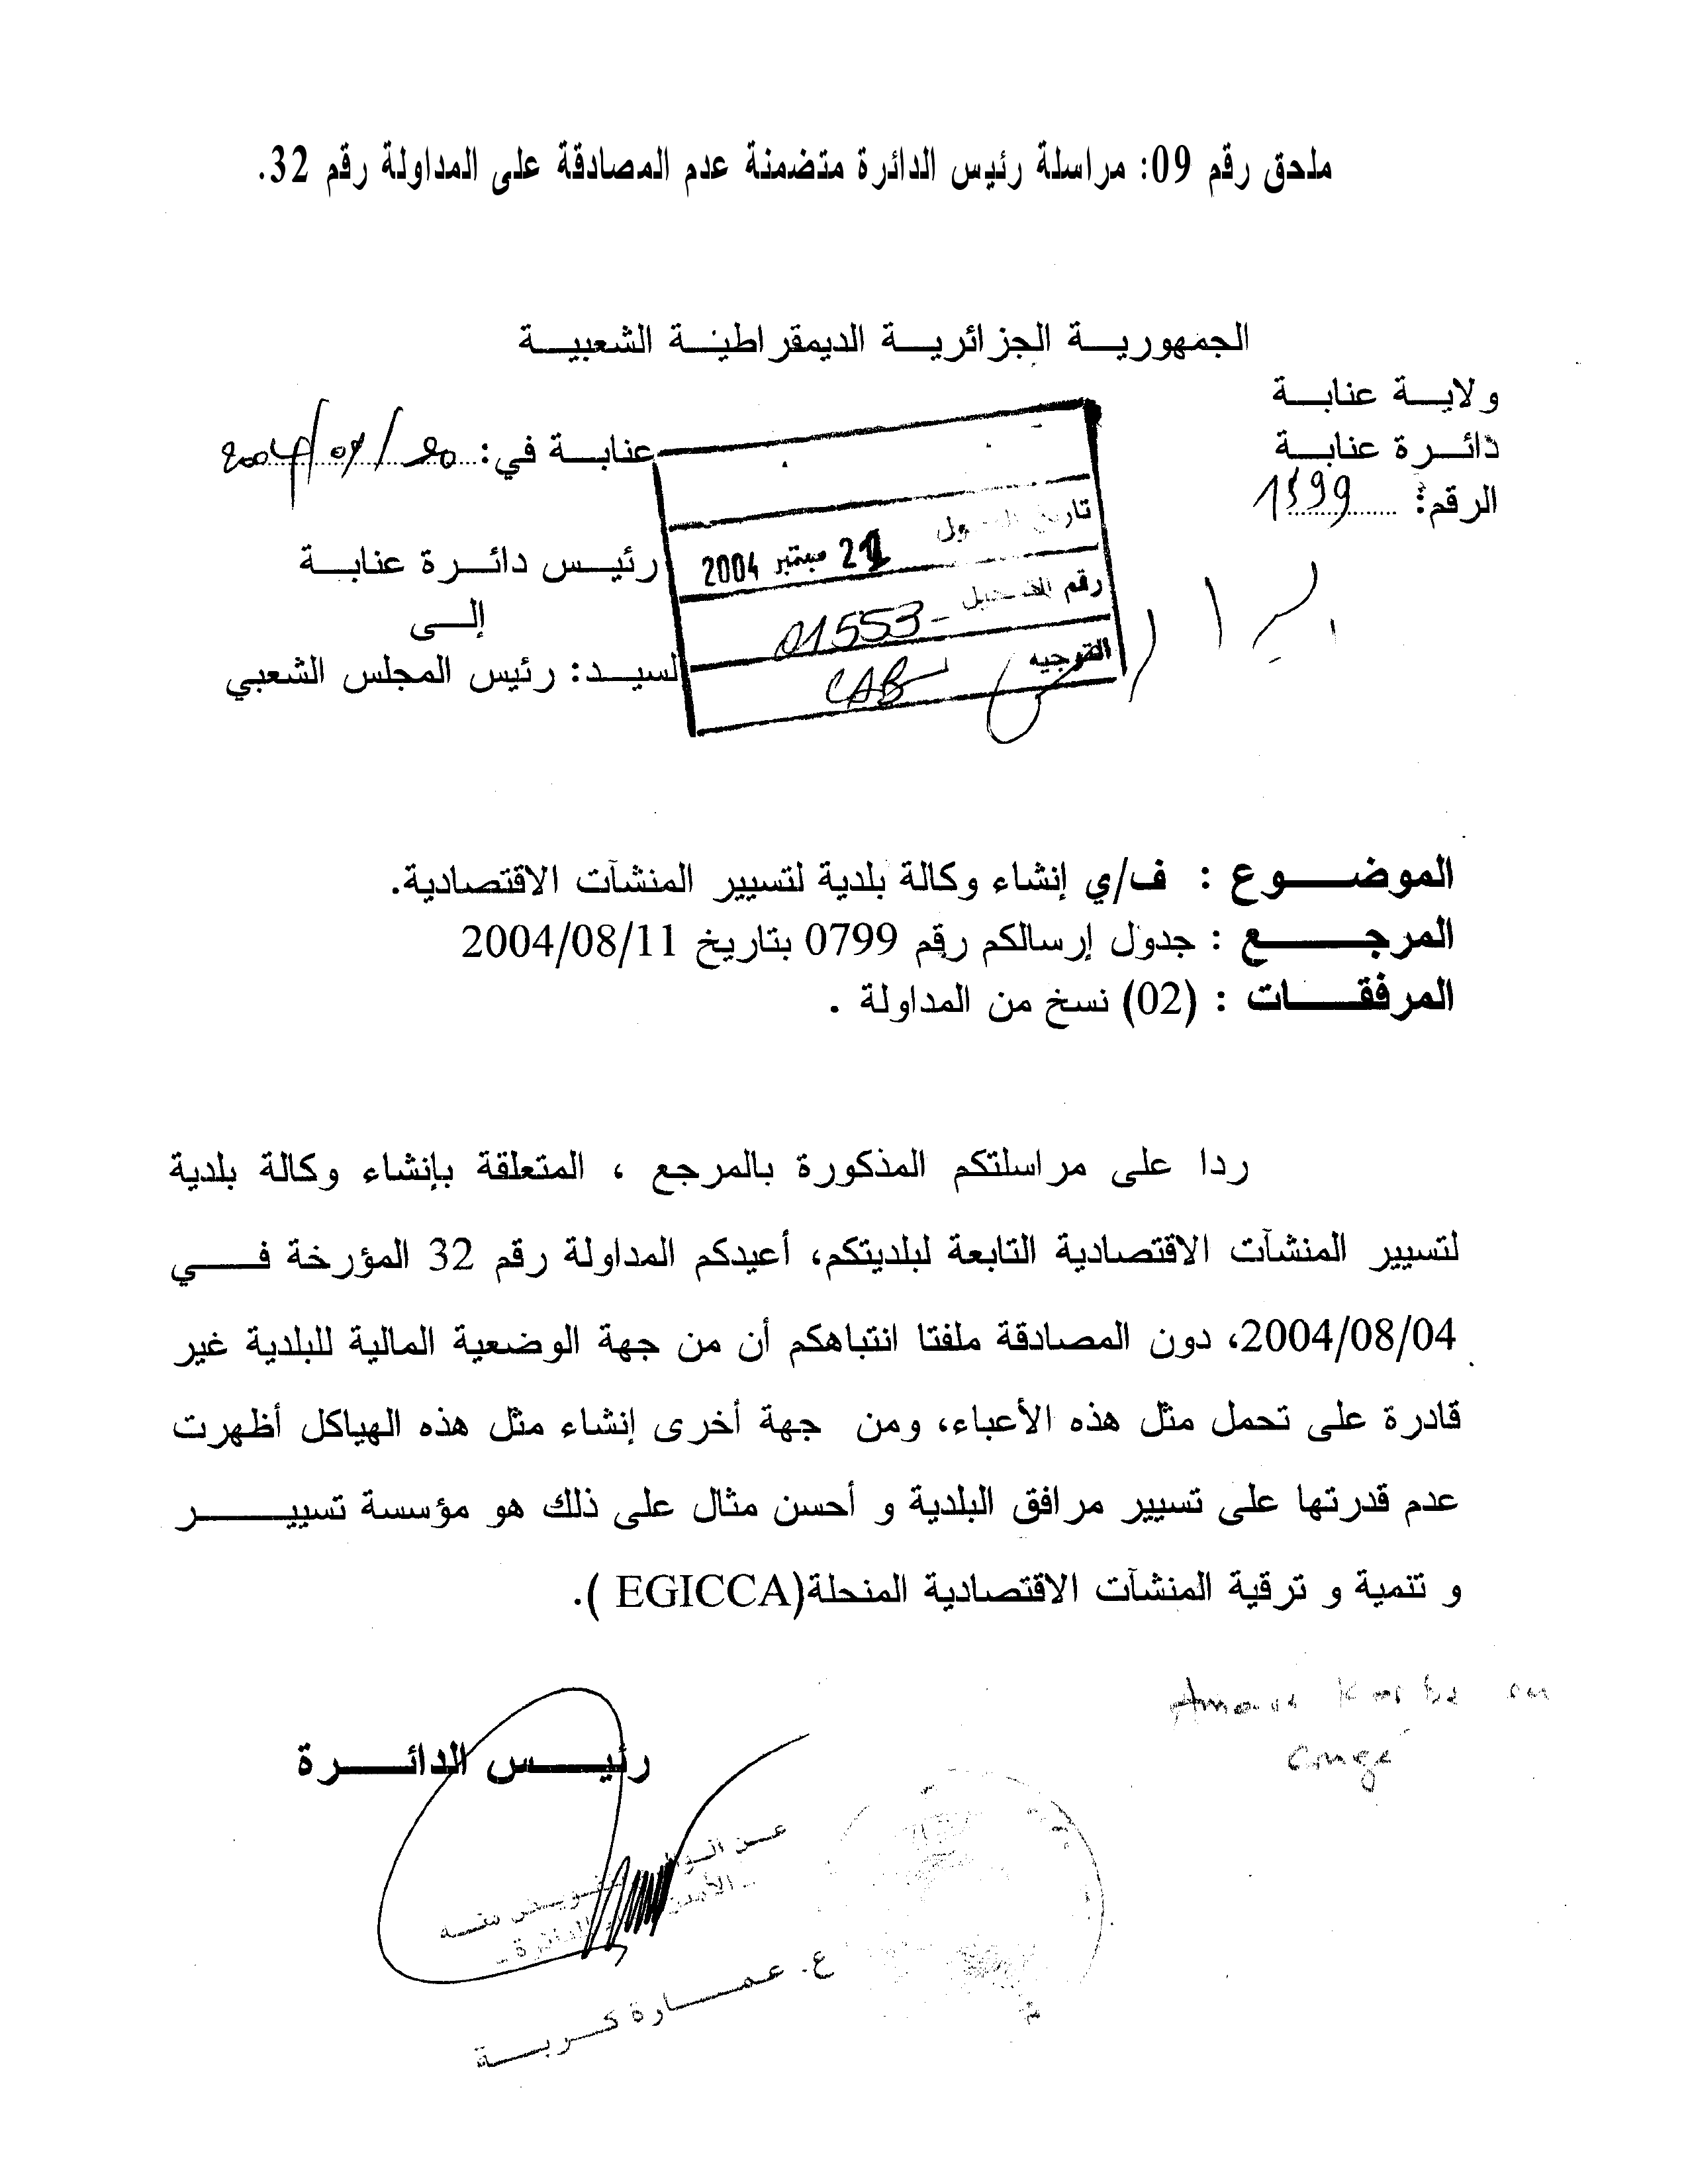 ملحق رقم 09: مراسلة رئيس الدائرة متضمنة عدم المصادقة على المداولة رقم 32.
الجمهوريــة الجزائريــة الديمقراطيــة الشعبيــة
ولايــة عنابــة
دائــرة عنابــة
الرقم: 1599
عنابــة في: 2004/09/20
تاريخ الوصول
21 سبتمبر 2004
رقم التسجيل
01553
التوجيه
CAB
رئيــس دائــرة عنابــة
إلــى
لسيــد: رئيس المجلس الشعبي
الموضــــوع : ف/ي إنشاء وكالة بلدية لتسيير المنشآت الاقتصادية.
المرجــــــع : جدول إرسالكم رقم 0799 بتاريخ 2004/08/11
المرفقــــات : (02) نسخ من المداولة .
ردا على مراسلتكم المذكورة بالمرجع ، المتعلقة بإنشاء وكالة بلدية
لتسيير المنشآت الاقتصادية التابعة لبلديتكم، أعيدكم المداولة رقم 32 المؤرخة فــــي
2004/08/04، دون المصادقة ملفتا انتباهكم أن من جهة الوضعية المالية للبلدية غير
قادرة على تحمل مثل هذه الأعباء، ومن جهة أخرى إنشاء مثل هذه الهياكل أظهرت
عدم قدرتها على تسيير مرافق البلدية و أحسن مثال على ذلك هو مؤسسة تسييـــــــر
و تنمية و ترقية المنشآت الاقتصادية المنحلة(EGICCA ).
congé
رئيــــس الدائــــرة
ع. عمــــارة كــربــــة